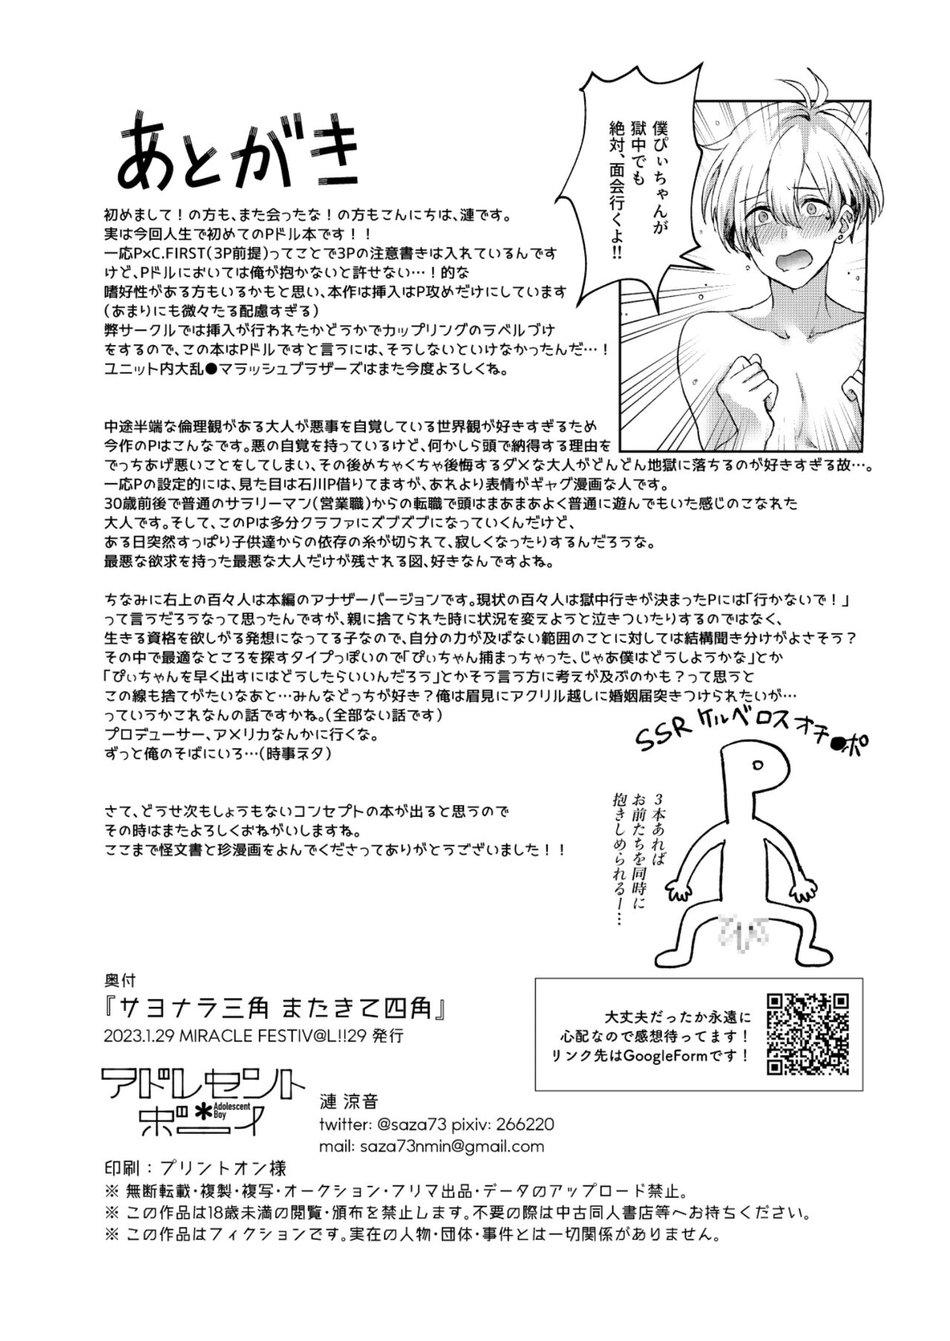 あとがき
僕ぴぃちゃんが
獄中でも
絶対、面会行くよ!!
初めまして！の方も、また会ったな！の方もこんにちは、漣です。
実は今回人生で初めてのPドル本です！！
一応P×C.FIRST(3P前提)ってことで3Pの注意書きは入れているんです
けど、Pドルにおいては俺が抱かないと許せない…！的な
嗜好性がある方もいるかもと思い、本作は挿入はP攻めだけにしています
(あまりにも微々たる配慮すぎる)
弊サークルでは挿入が行われたかどうかでカップリングのラベルづけ
をするので、この本はPドルですと言うには、そうしないといけなかったんだ…！
ユニット内大乱●マラッシュブラザーズはまた今度よろしくね。
中途半端な倫理観がある大人が悪事を自覚している世界観が好きすぎるため
今作のPはこんなです。悪の自覚を持っているけど、何かしら頭で納得する理由を
でっちあげ悪いことをしてしまい、その後めちゃくちゃ後悔するダメな大人がどんどん地獄に落ちるのが好きすぎる故…。
一応Pの設定的には、見た目は石川P借りてますが、あれより表情がギャグ漫画な人です。
30歳前後で普通のサラリーマン(営業職)からの転職で頭はまあまあよく普通に遊んでもいた感じのこなれた
大人です。そして、このPは多分クラファにズブズブになっていくんだけど、
ある日突然すっぱり子供達からの依存の糸が切られて、寂しくなったりするんだろうな。
最悪な欲求を持った最悪な大人だけが残される図、好きなんですよね。
ちなみに右上の百々人は本編のアナザーバージョンです。現状の百々人は獄中行きが決まったPには「行かないで！」
って言うだろうなって思ったんですが、親に捨てられた時に状況を変えようと泣きついたりするのではなく、
生きる資格を欲しがる発想になってる子なので、自分の力が及ばない範囲のことに対しては結構聞き分けがよさそう？
その中で最適なところを探すタイプっぽいので「ぴぃちゃん捕まっちゃった、じゃあ僕はどうしようかな」とか
「ぴぃちゃんを早く出すにはどうしたらいいんだろう」とかそう言う方に考えが及ぶのかも？って思うと
この線も捨てがたいなあと…みんなどっちが好き？俺は眉見にアクリル越しに婚姻届突きつけられたいが…
っていうかこれなんの話ですかね。(全部ない話です)
プロデューサー、アメリカなんかに行くな。
ずっと俺のそばにいろ…(時事ネタ)
SSRケルベロスオチ●ポ
3本あれば
お前たちを同時に
抱きしめられるー…
P
さて、どうせ次もしょうもないコンセプトの本が出ると思うので
その時はまたよろしくおねがいしますね。
ここまで怪文書と珍漫画をよんでくださってありがとうございました！！
奥付
『サヨナラ三角 またきて四角』
2023.1.29 MIRACLE FESTIV@L!!29 発行
大丈夫だったか永遠に
心配なので感想待ってます！
リンク先はGoogleFormです！
アドレセント
ボーイ
Adolescent
Boy
漣 涼音
twitter: @saza73 pixiv: 266220
mail: saza73nmin@gmail.com
印刷：プリントオン様
※ 無断転載・複製・複写・オークション・フリマ出品・データのアップロード禁止。
※ この作品は18歳未満の閲覧・頒布を禁止します。不要の際は中古同人書店等へお持ちください。
※ この作品はフィクションです。実在の人物・団体・事件とは一切関係がありません。